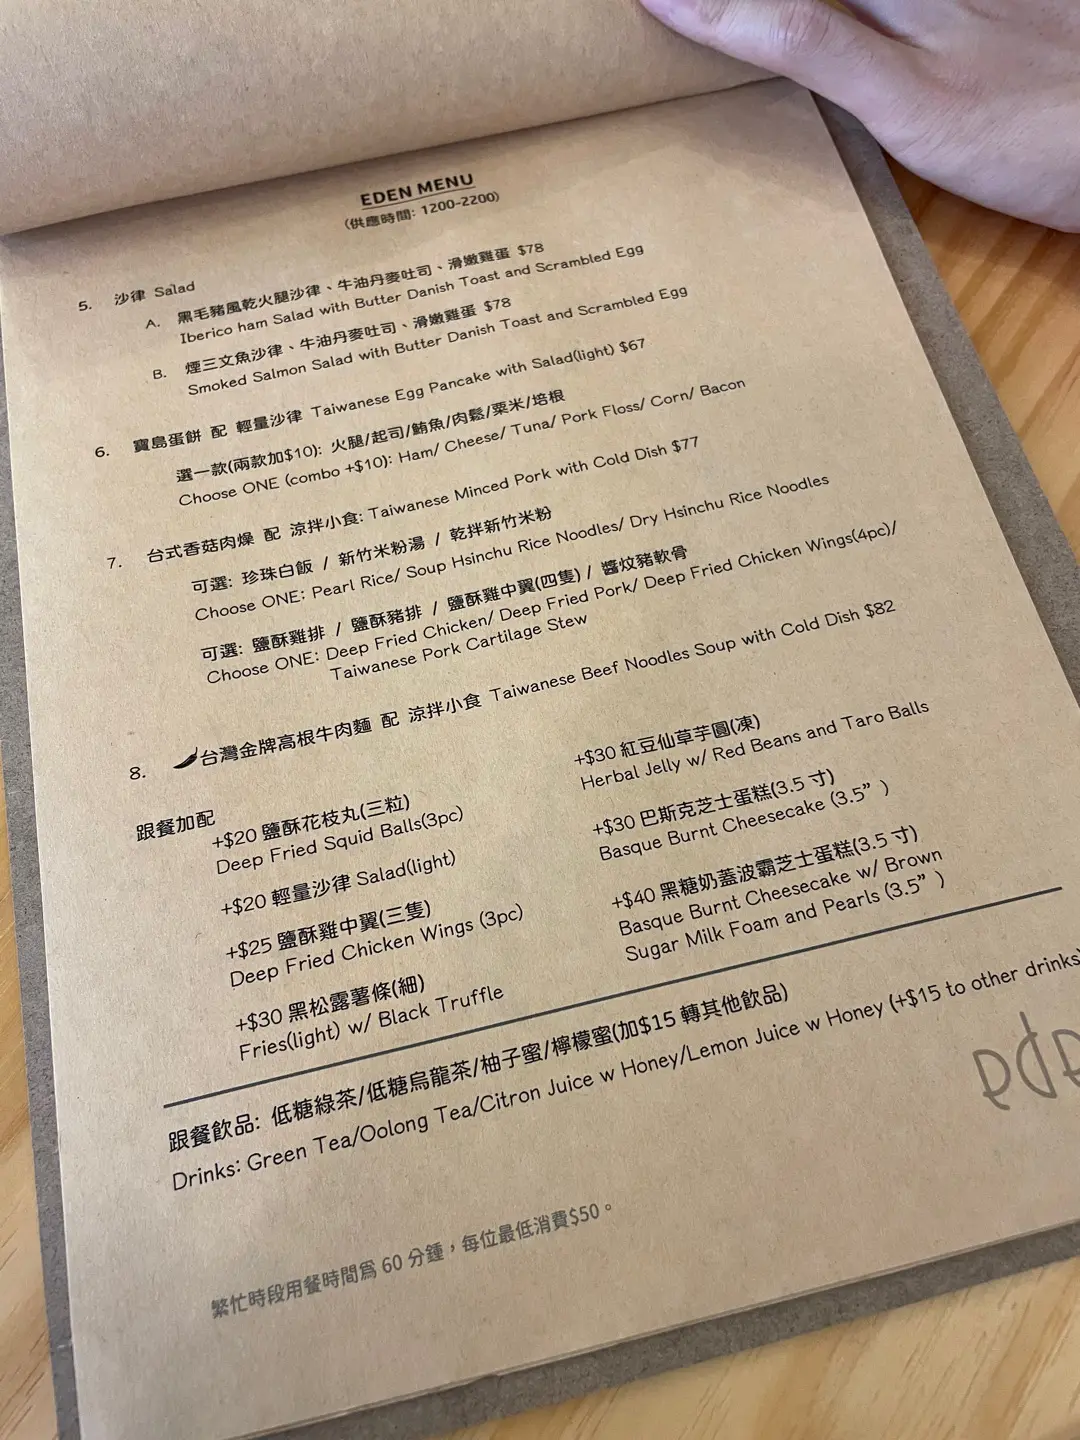 EDEN MENU
(供應時間: 1200-2200)
5. 沙律 Salad
A. 黑毛豬風乾火腿沙律、牛油丹麥吐司、滑嫩雞蛋 $78
Iberico ham Salad with Butter Danish Toast and Scrambled Egg
B. 煙三文魚沙律、牛油丹麥吐司、滑嫩雞蛋 $78
Smoked Salmon Salad with Butter Danish Toast and Scrambled Egg
6. 寶島蛋餅 配 輕量沙律 Taiwanese Egg Pancake with Salad(light) $67
選一款(兩款加$10): 火腿/起司/鮪魚/肉鬆/粟米/培根
Choose ONE (combo +$10): Ham/ Cheese/ Tuna/ Pork Floss/ Corn/ Bacon
7. 台式香菇肉燥 配 涼拌小食: Taiwanese Minced Pork with Cold Dish $77
可選: 珍珠白飯 / 新竹米粉湯 / 乾拌新竹米粉
Choose ONE: Pearl Rice/ Soup Hsinchu Rice Noodles/ Dry Hsinchu Rice Noodles
可選: 鹽酥雞排 / 鹽酥豬排 / 鹽酥雞中翼(四隻) / 醬炆豬軟骨
Choose ONE: Deep Fried Chicken/ Deep Fried Pork/ Deep Fried Chicken Wings(4pc)/
Taiwanese Pork Cartilage Stew
8. 台灣金牌高根牛肉麵 配 涼拌小食 Taiwanese Beef Noodles Soup with Cold Dish $82
跟餐加配
+$20 鹽酥花枝丸(三粒)
Deep Fried Squid Balls(3pc)
+$20 輕量沙律 Salad(light)
+$25 鹽酥雞中翼(三隻)
Deep Fried Chicken Wings (3pc)
+$30 黑松露薯條(細)
Fries(light) w/ Black Truffle
+$30 紅豆仙草芋圓(凍)
Herbal Jelly w/ Red Beans and Taro Balls
+$30 巴斯克芝士蛋糕(3.5 寸)
Basque Burnt Cheesecake (3.5” )
+$40 黑糖奶蓋波霸芝士蛋糕(3.5 寸)
Basque Burnt Cheesecake w/ Brown
Sugar Milk Foam and Pearls (3.5” )
跟餐飲品: 低糖綠茶/低糖烏龍茶/柚子蜜/檸檬蜜(加$15 轉其他飲品)
Drinks: Green Tea/Oolong Tea/Citron Juice w Honey/Lemon Juice w Honey (+$15 to other drinks)
繁忙時段用餐時間為 60 分鐘，每位最低消費$50。